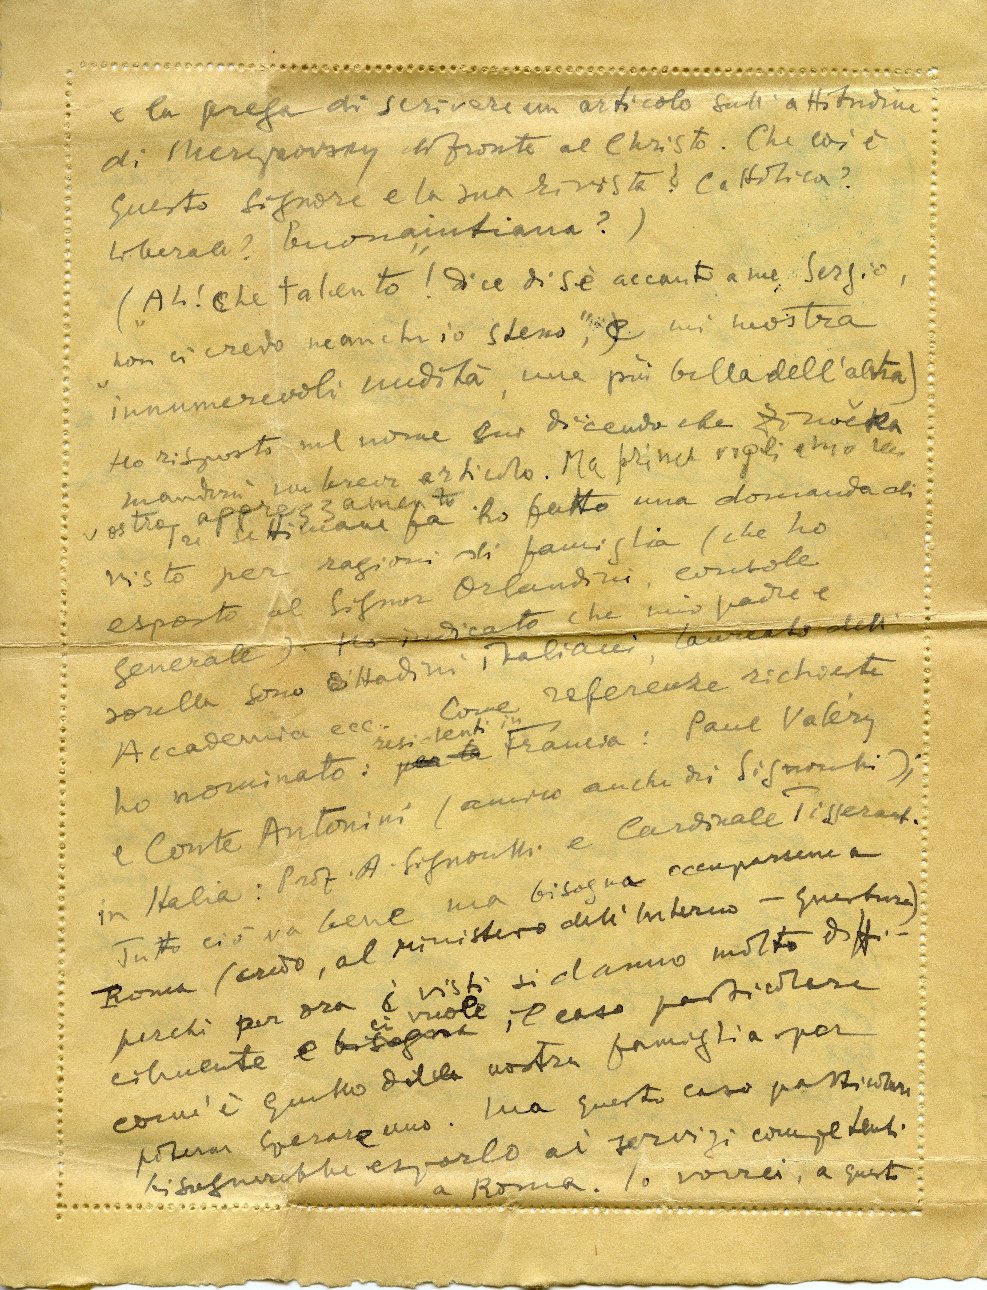 e la prega di scrivere un articolo sull'attitudine
di Merejkovsky di fronte al Christo. Che cos'è
questo Signore e la sua rivista? Cattolica?
Liberale? Buonaiutiana?)
(Ah! che talento! dice di sè accanto a me, Sergio,
"non ci credo neanch'io stesso", e mi mostra
"innumerevoli nudità, una più bella dell'altra)
Ho risposto nel nome suo dicendo che Zinočka
manderà un breve articolo. Ma prima vogliamo un
vostro apprezzamento
Tre settimane fa ho fatto una domanda di
visto per ragioni di famiglia (che ho
esposto al Signor Orlandini, console
generale). Ho indicato che mio padre e
sorella sono cittadini italiani, laureato dell'
Accademia ecc. Come referenze richieste
ho nominato: per la residenti in Francia: Paul Valéry
e Conte Antonini (amico anche dei Signorelli);
in Italia: Prof. A. Signorelli e Cardinale Tisserant.
Tutto ciò va bene ma bisogna occuparsene a
Roma (credo, al Ministero dell'Interno – Questura)
perchè per ora i visti si danno molto diffi-
cilmente e bisogna ci vuole il caso particolare
com'è quello della nostra famiglia per
poter sperare uno. Ma questo caso particolare
bisognerebbe esporlo ai servizi competenti
a Roma. Io vorrei, a questo